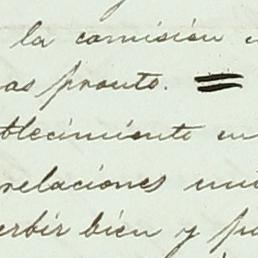 la comisión
as pronto. =
blecimiento en
relaciones
erbir bien y